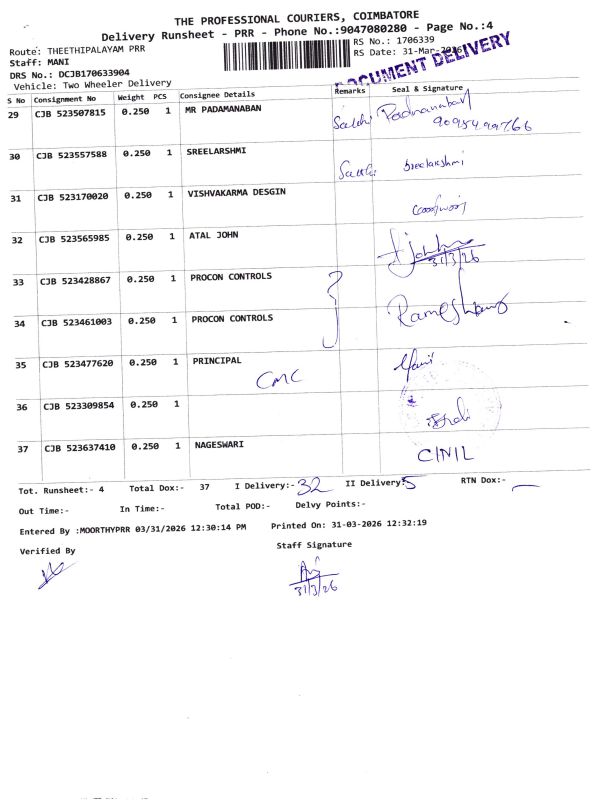 THE PROFESSIONAL COURIERS, COIMBATORE
Delivery Runsheet - PRR - Phone No.:9047080280 - Page No.:4
Route: THEETHIPALAYAM PRR
RS No.: 1706339
Staff: MANI
RS Date: 31-Mar-2026
DOCUMENT DELIVERY
DRS No.: DCJB170633904
Vehicle: Two Wheeler Delivery
S No Consignment No Weight PCS Consignee Details Remarks Seal & Signature
29 CJB 523507815 0.250 1 MR PADAMANABAN Padmanaban
9095499766
30 CJB 523557588 0.250 1 SREELARSHMI Sreelakshmi
31 CJB 523170020 0.250 1 VISHVAKARMA DESGIN
32 CJB 523565985 0.250 1 ATAL JOHN
31/3/26
33 CJB 523428867 0.250 1 PROCON CONTROLS
34 CJB 523461003 0.250 1 PROCON CONTROLS
35 CJB 523477620 0.250 1 PRINCIPAL
CMC
36 CJB 523309854 0.250 1
37 CJB 523637410 0.250 1 NAGESWARI
Tot. Runsheet:- 4 Total Dox:- 37 I Delivery:- 32 II Delivery:- 5 RTN Dox:- —
Out Time:- In Time:- Total POD:- Delvy Points:-
Entered By :MOORTHYPRR 03/31/2026 12:30:14 PM Printed On: 31-03-2026 12:32:19
Verified By Staff Signature
31/3/26